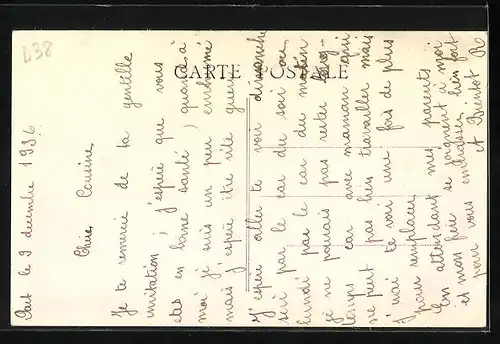 D38
CARTE POSTALE
le 9 décembre 1936
Chère Cousine
Je te remercie de ta gentille
invitation ; j'espère que vous
êtes en bonne santé ; quand à
moi je suis un peu enrhumé
mais j'espère être vite guéri
J'espère aller te voir dimanche
soit par le car du soir ou
lundi par le car du matin
je ne pourais pas rester
temps car avec maman qui
ne peut pas bien travailler mais
J'irai te voir une fois de plus
pour remplacer.
En attendant mes parents
et mon frère se joignent à moi
et pour vous embrasser bien fort
A Bientôt R